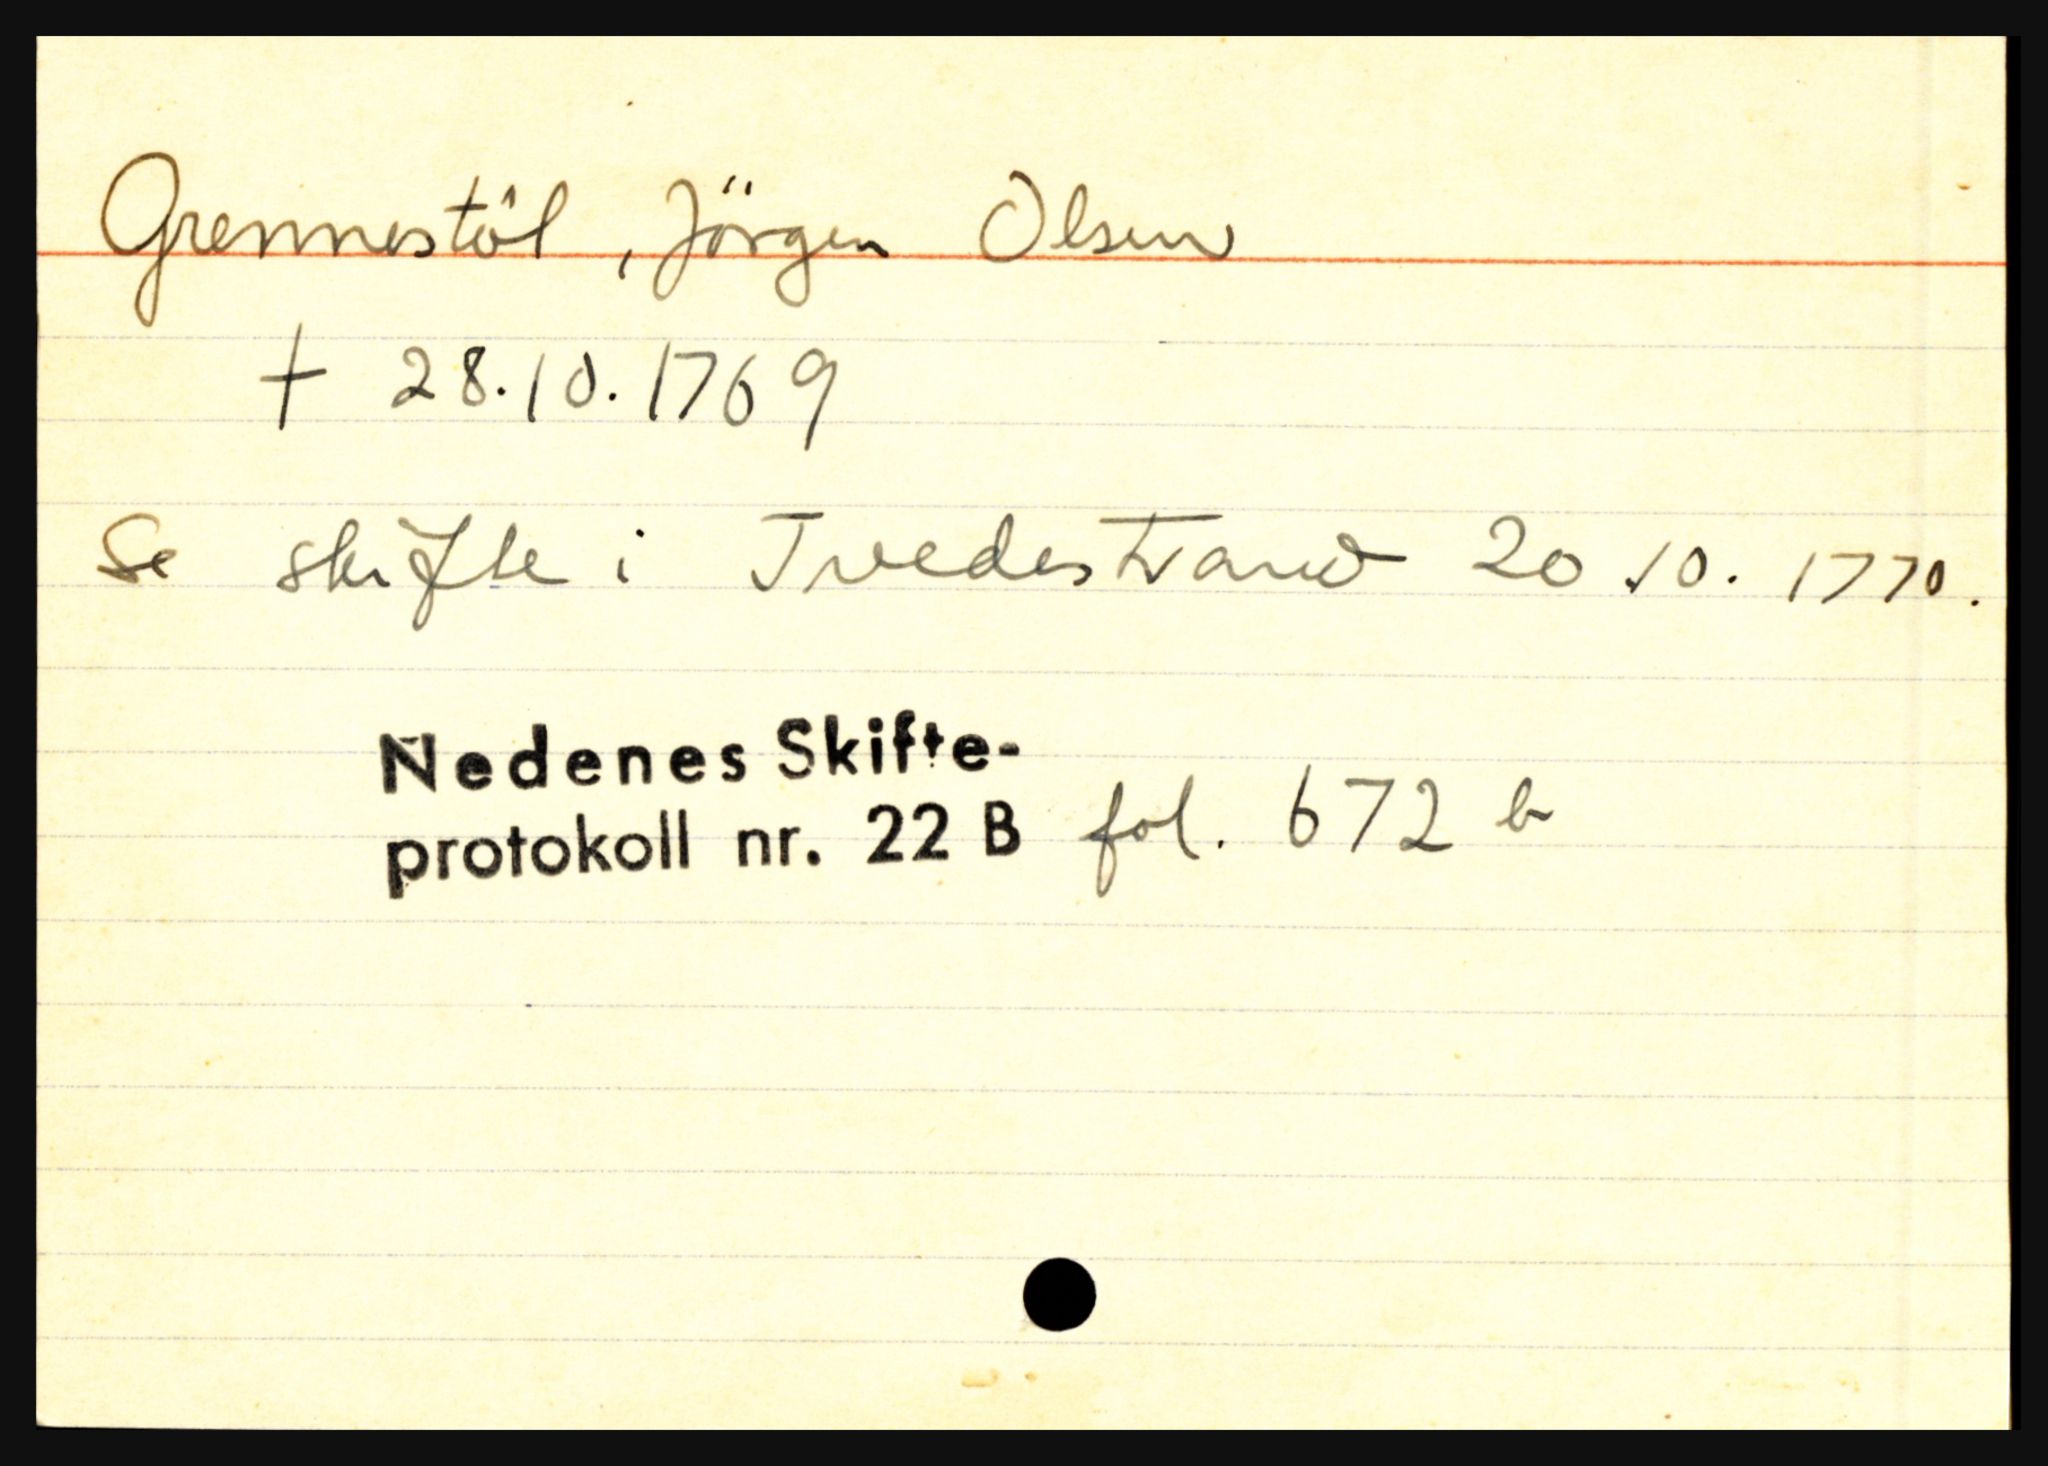 Grennestöl, Jörgen Olsen
† 28.10.1769
Se skifte i Tvedestrand 20.10.1770.
Nedenes Skifte-
protokoll nr. 22 B fol. 672 b